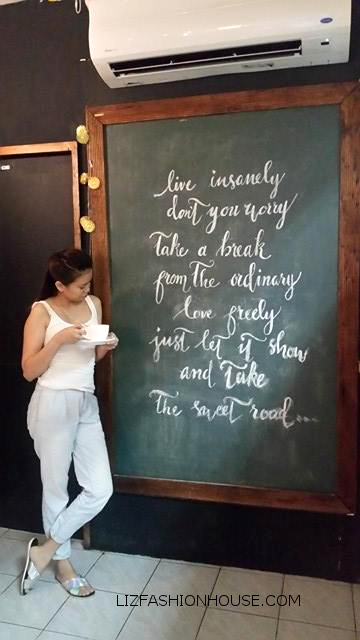 live insanely
don't you worry
Take a break
from The ordinary
love freely
just let it show
and Take
The sweet road...
LIZFASHIONHOUSE.COM